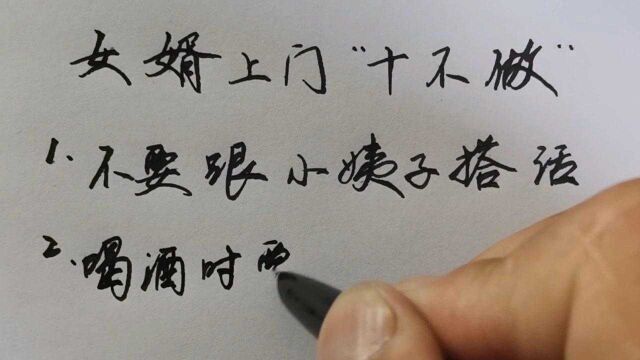 女婿上门“十不做”
1. 不要跟小姨子搭话
2. 喝酒时